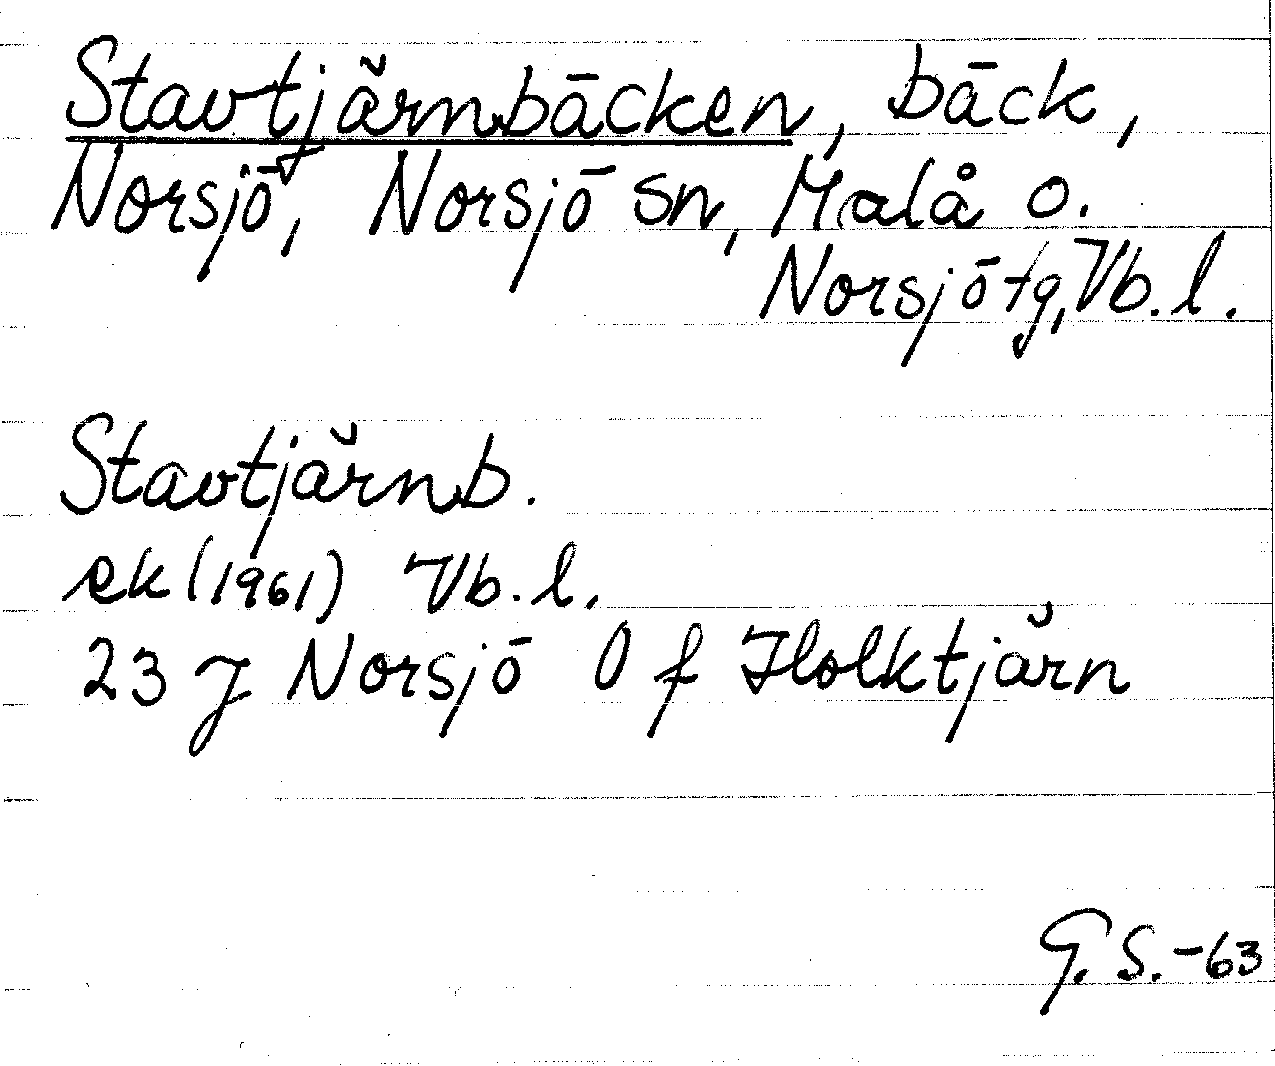 Stavtjärnbäcken, bäck,
Norsjö, Norsjö sn, Malå o.
Norsjö tg, Vb. l.
Stavtjärnb.
ek (1961) Vb. l.
23 J Norsjö O f Holktjärn
G. S. -63